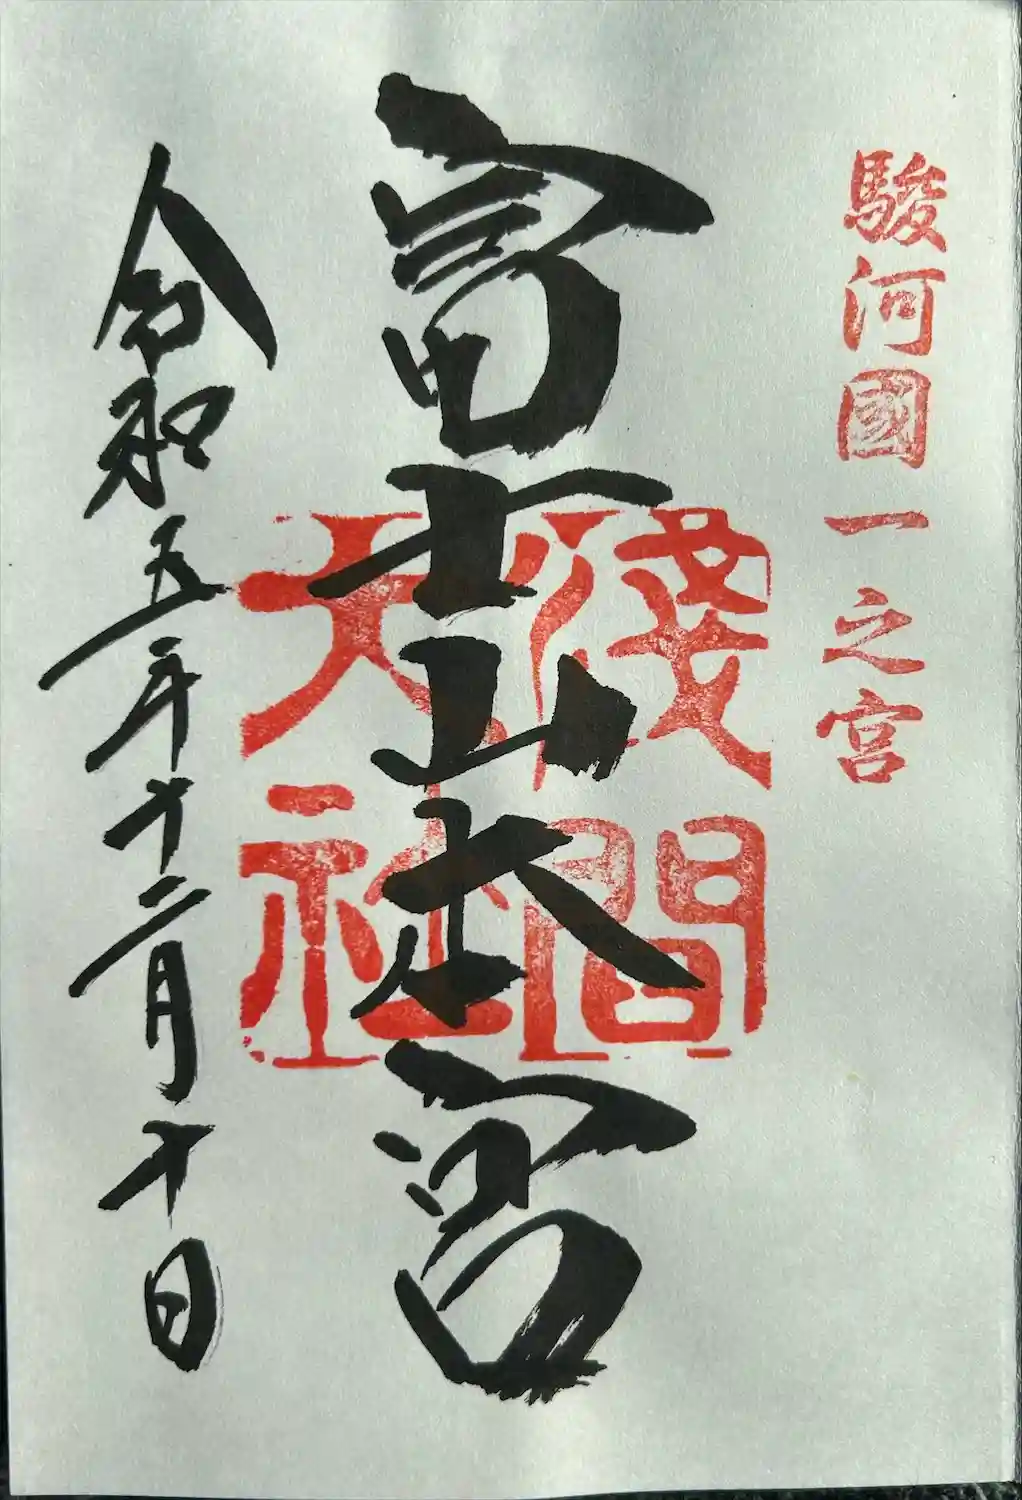 駿河國一之宮
富士山本宮
淺間大社
令和五年十二月十日